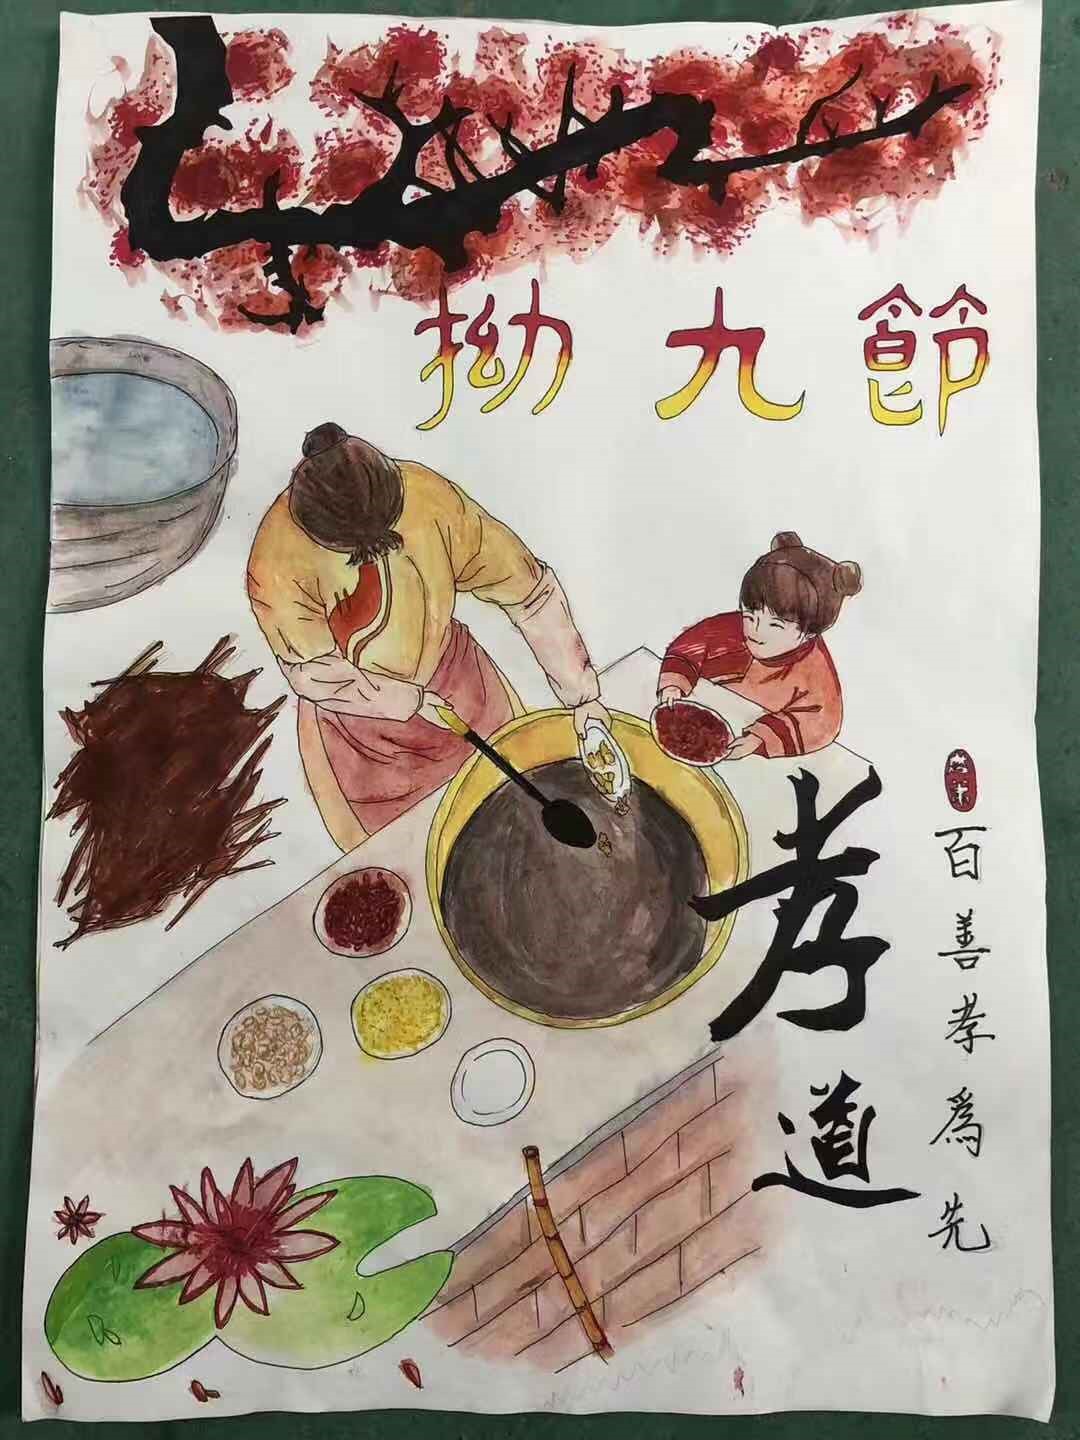 拗九節
孝道
百善孝為先